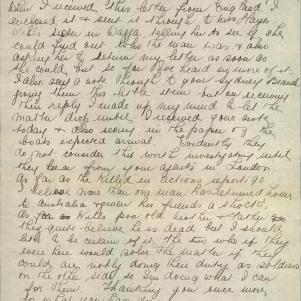 when I received this letter from England I
enclosed it & sent it through to his
Wills sister in Wagga telling her to see if she
could find out who the man was & also
asking her to return my letter as soon as
she could but so far have heard no more of it.
I also sent a note through to your Sydney Branch
giving them this little item but on receiving
their reply I made up my mind to let the
matter drop until I received your note
today & also seeing in the paper of the
boats expected arrival. Evidently they
do not consider this worth investigating until
they hear from your agents in London
as far as the Killed in Actions reports go
I believe more than one man has returned home
to Australia & given his friends a shock,
as for Wills poor old mother & father
they quite believe he is dead but I should
like to be certain of it. The who if they
were here would soon the matter if they
could, are nobly doing their duty as soldiers
on the other side so I'm doing what I can
for them. Thanking you once more
for what you have